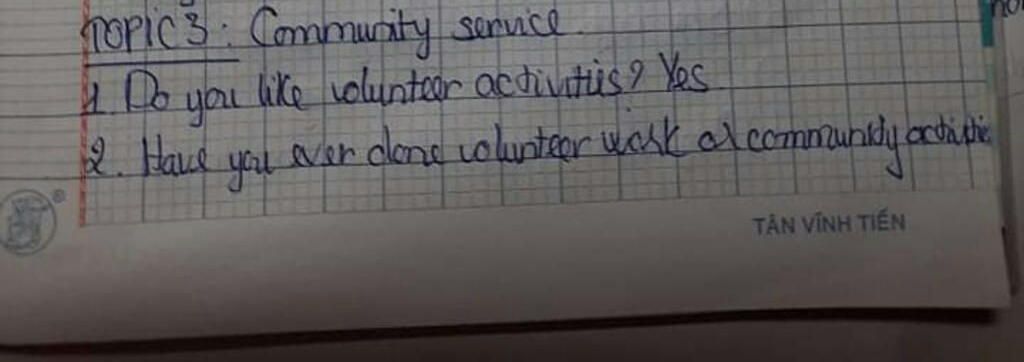 Topic 3: Community service.
1. Do you like volunteer activities? Yes
2. Have you ever done volunteer work or community activitie
TÂN VĨNH TIẾN